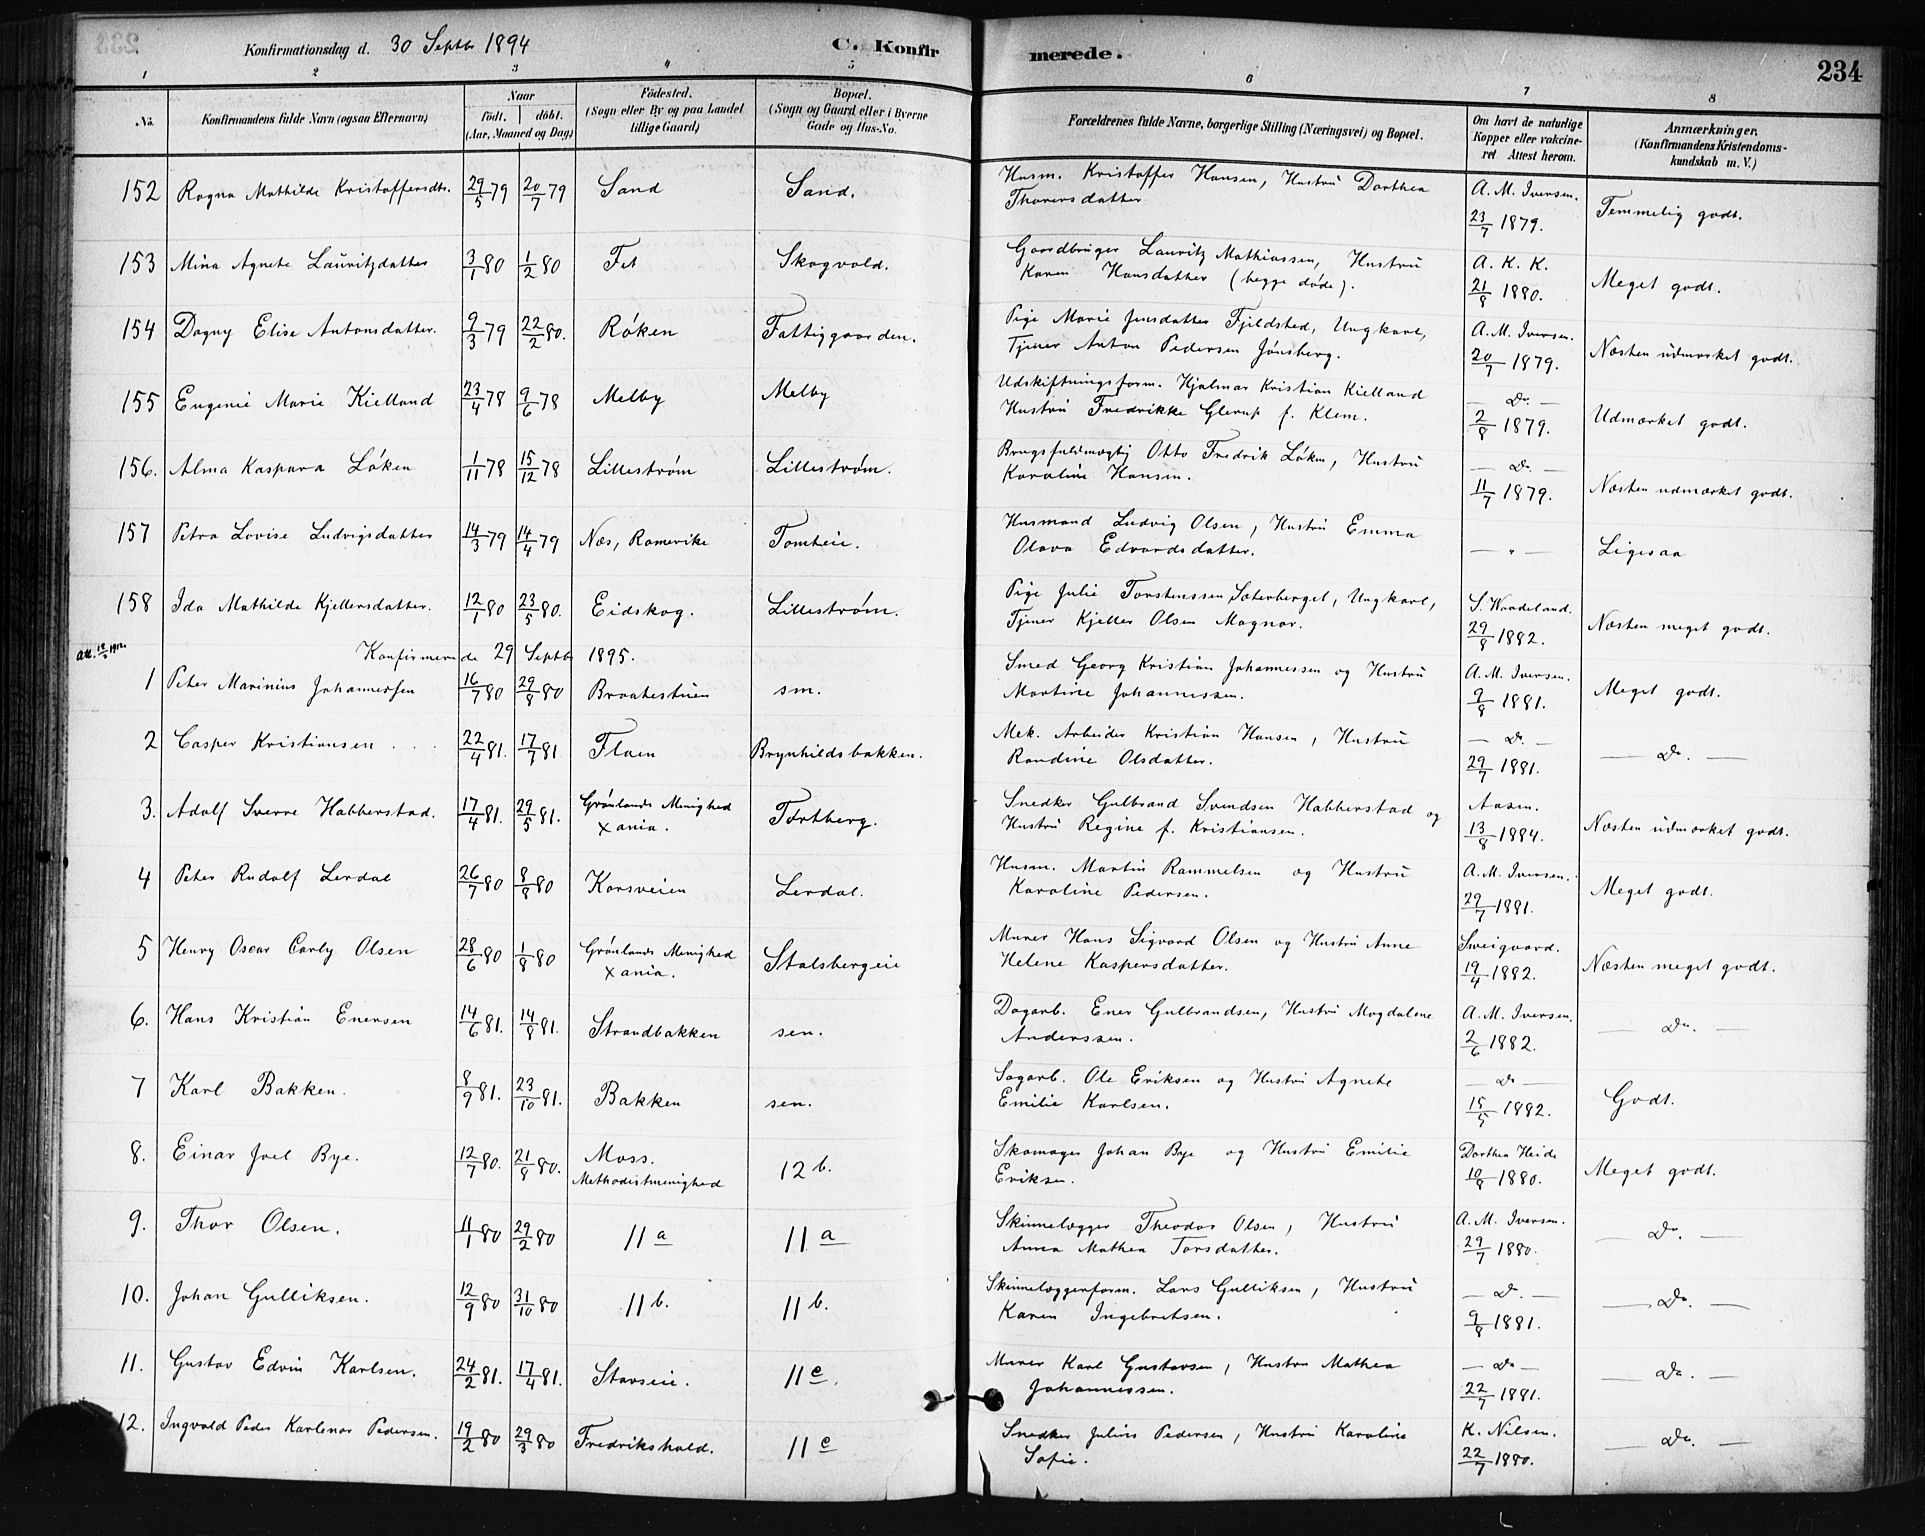 Konfirmationsdag d. 30 Septbr 1894
C. Konfirmerede. 234
1 2 3 4 5 6 7 8
No. Konfirmandens fulde Navn (ogsaa Efternavn) Naar födt. döbt. (Aar, Maaned og Dag) Födested. (Sogn eller By og paa Landet tillige Gaard) Bopæl. (Sogn og Gaard eller i Byerne Gade og Hus-No. Forældrenes fulde Navne, borgerlige Stilling (Næringsvei) og Bopæl. Om havt de naturlige Kopper eller vakcineret Attest herom. Anmærkninger. (Konfirmandens Kristendomskundskab m. V.)
152 Ragna Mathilde Kristoffersdtr. 29/5 79 20/7 79 Sand Sand. Husm. Kristoffer Hansen, Hustru Dorthea Thoversdatter A. M. Iversen. 23/7 1879. Temmelig godt.
153 Mina Agnete Lauritzdatter 3/1 80 1/2 80 Fet Skogvold. Gaardbruger Lauritz Mathiassen, Hustru Karen Hansdatter (begge døde). A. K. K. 21/8 1880. Meget godt.
154 Dagny Elise Antonsdatter. 9/3 79 22/2 80. Røken Fattiggaarden. Pige Marie Jensdatter Fjeldsted, Ungkarl, Tjener Anton Pedersen Jønsberg. A. M. Iversen. 20/7 1879. Næsten udmærket godt.
155 Eugenie Marie Kielland 23/4 78 9/6 78 Melby Melby Udskiftningsform. Hjalmar Kristian Kielland Hustru Fredrikke Glerup f. Klem. — Do. — 2/8 1879. Udmærket godt.
156. Alma Kaspara Løken 1/11 78 15/12 78 Lillestrøm Lillestrøm. Brugsfuldmægtig Otto Fredrik Løken, Hustru Karoline Hansen. — Do. — 11/7 1879. Næsten udmærket godt.
157 Petra Lovise Ludvigsdatter 14/3 79 14/4 79 Næs, Romerike Tomteie. Husmand Ludvig Olsen, Hustru Emma Olava Edvardsdatter. — " — Ligesaa
158 Ida Mathilde Kjellersdatter. 12/1 80 23/5 80. Eidskog. Lillestrøm. Pige Julie Torstenssen Sæterberget, Ungkarl, Tjener Kjeller Olsen Magnor. S. Waadeland. 29/8 1882. Næsten meget godt.
Konfirmerede 29 Septbr 1895.
1 Peter Marinius Johannessen 16/7 80 29/8 80 Braatestuen sm. Smed Georg Kristian Johannessen og Hustru Martine Johannessen. A. M. Iversen. 9/8 1881. Meget godt.
2 Casper Kristiansen 22/4 81. 17/7 81 Flaen Brynhildsbakken. Mek. Arbeider Kristian Hansen, Hustru Randine Olsdatter. — Do. — 29/7 1881. — Do. —
3. Adolf Sverre Habberstad. 17/4 81. 29/5 81. Grønlands Menighed Xania. Tortberg. Snedker Gulbrand Svendsen Habberstad og Hustru Regine f. Kristiansen. Aasen. 13/8 1884. Næsten udmærket godt.
4 Peter Rudolf Lerdal 26/7 80 8/8 80 Korsveien Lerdal. Husm. Martin Rammelsen og Hustru Karoline Pedersen. A. M. Iversen. 29/7 1881. Meget godt.
5 Henry Oscar Carly Olsen 28/6 80 1/8 80 Grønlands Menighed Xania. Stalsbergeie Murer Hans Sigvard Olsen og Hustru Anne Helene Kaspersdatter. Sweigaard. 19/4 1882. Næsten meget godt.
6. Hans Kristian Enersen 14/6 81. 14/8 81. Strandbakken sen. Dagarb. Ener Gulbrandsen, Hustru Magdalene Anderssen. A. M. Iversen. 2/6 1882. — Do. —
7 Karl Bakken. 8/9 81. 23/10 81. Bakken sen. Sagarb. Ole Eriksen og Hustru Agnete Emilie Karlsen. — Do — 15/5 1882. Godt.
8. Einar Joel Bye. 12/7 80. 21/8 80. Moss. Methodistmenighed 12 b. Skomager Johan Bye og Hustru Emilie Eriksen. Dorthea Heide 10/8 1880. Meget godt.
9. Thor Olsen. 11/1 80 29/2 80 11 a 11 a Skinnelægger Theodor Olsen, Hustru Anna Mathea Torsdatter. A. M. Iversen. 29/7 1880. — Do. —
10. Johan Gulliksen. 12/9 80 31/10 80 11 b. 11 b. Skinnelæggerform. Lars Gulliksen, Hustru Karen Ingebretsen. — Do. — 9/8 1881. — Do. —
11. Gustav Edvin Karlsen. 24/2 81. 17/4 81. Stavseie. 11 c. Murer Karl Gustavsen, Hustru Mathea Johannessen. — Do — 22/7 1881. — Do. —
12. Ingvald Peder Karlenar Pedersen. 19/2 80 29/3 80 Fredrikshald. 11 c Snedker Julius Pedersen, Hustru Karoline Sofie. K. Nilsen. 22/7 1880. — Do. —